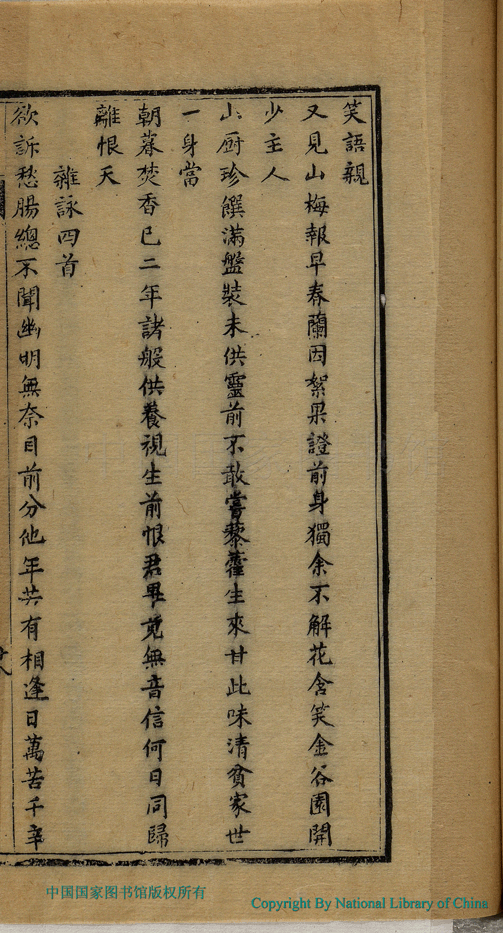 笑語親
又見山梅報早春蘭因絮果證前身獨余不解花含笑金谷園開
少主人
山厨珍饌滿盤裝未供靈前不敢嘗藜藿生來甘此味清貧家世
一身當
朝暮焚香已二年諸般供養視生前恨君畢竟無音信何日同歸
離恨天
雜詠四首
欲訴愁腸總不聞幽明無奈目前分他年共有相逢日萬苦千辛
中国国家图书馆版权所有
Copyright By National Library of China